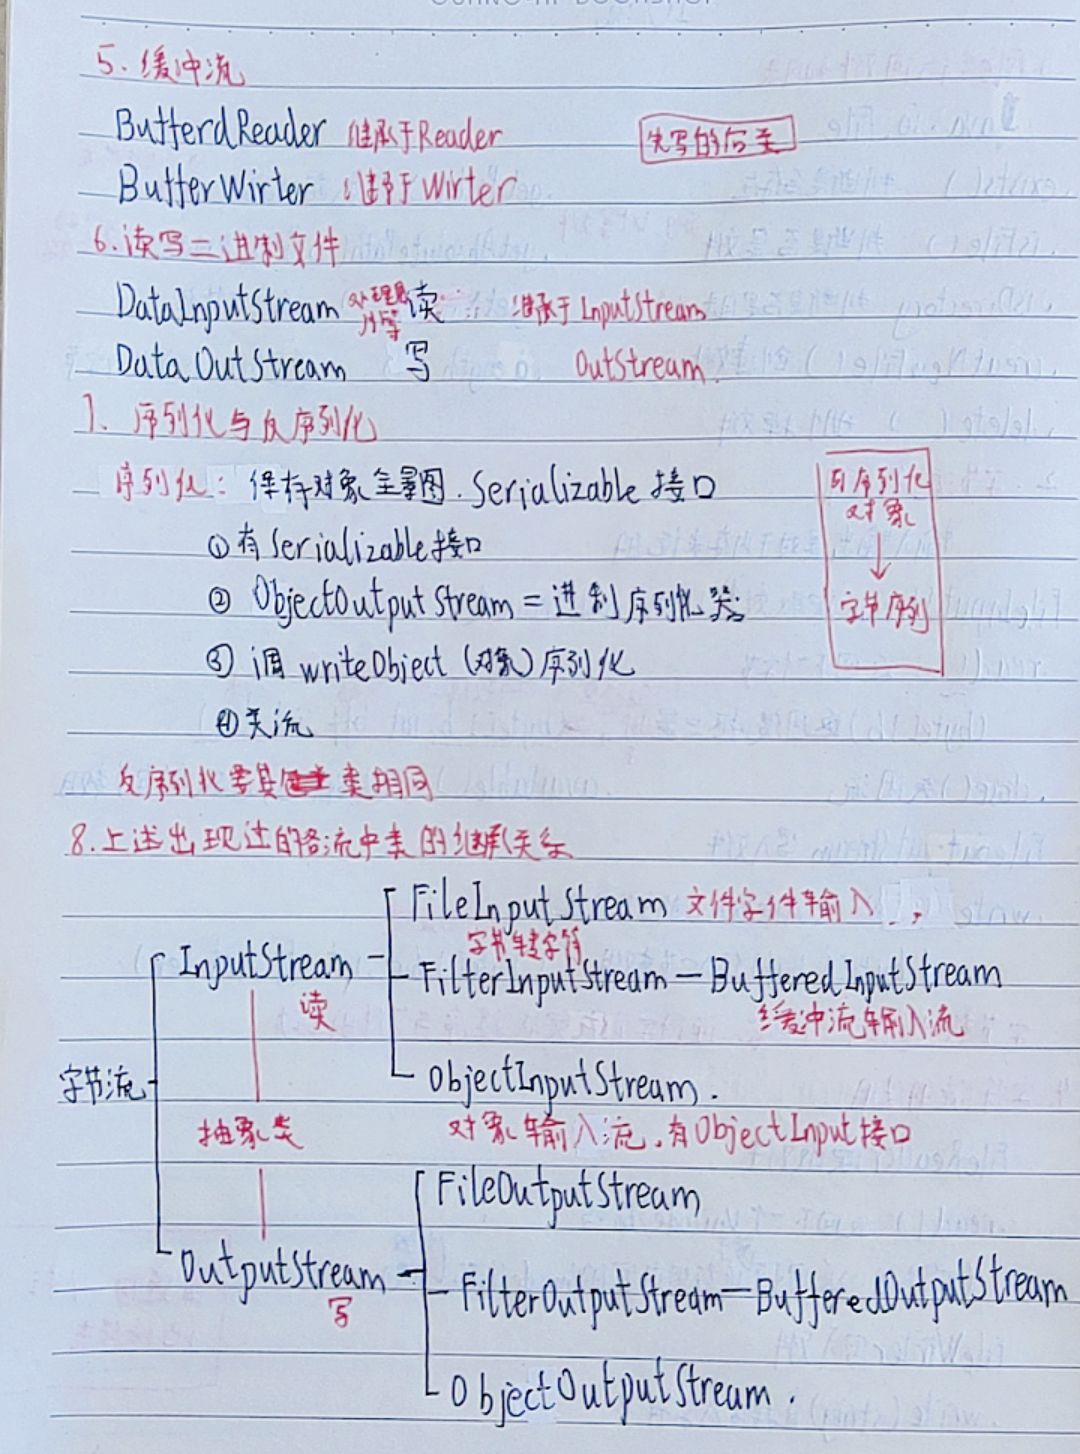 5. 缓冲流
ButterdReader 继承于Reader
先写的后关
ButterWirter 继承于Wirter
6. 读写二进制文件
DataInputStream 读 继承于InputStream
DataOutStream 写 OutStream
7. 序列化与反序列化
序列化: 保存对象全景图. Serializable 接口
对象
↓
字节序列
①有Serializable接口
② ObjectOutputStream = 进制序列化类
③ 调 writeObject (对象) 序列化
④关流
反序列化 类相同
8. 上述出现过的各流中类的继承关系
FileInputStream 文件字件输入
字节转字符
InputStream FilterInputStream — BufferedInputStream
读 缓冲流输入流
字节流 ObjectInputStream.
抽象类 对象输入流. 有ObjectInput接口
FileOutputStream
OutputStream FilterOutputStream — BufferedOutputStream
写
ObjectOutputStream.